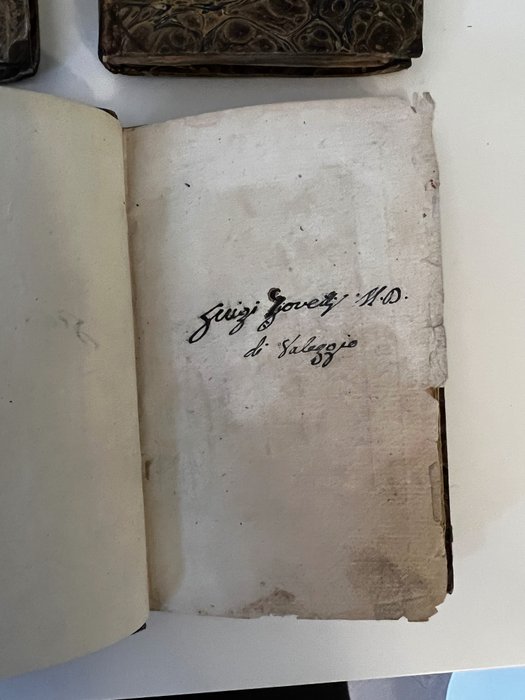 Luigi Zoveti M.D.
di Valeggio